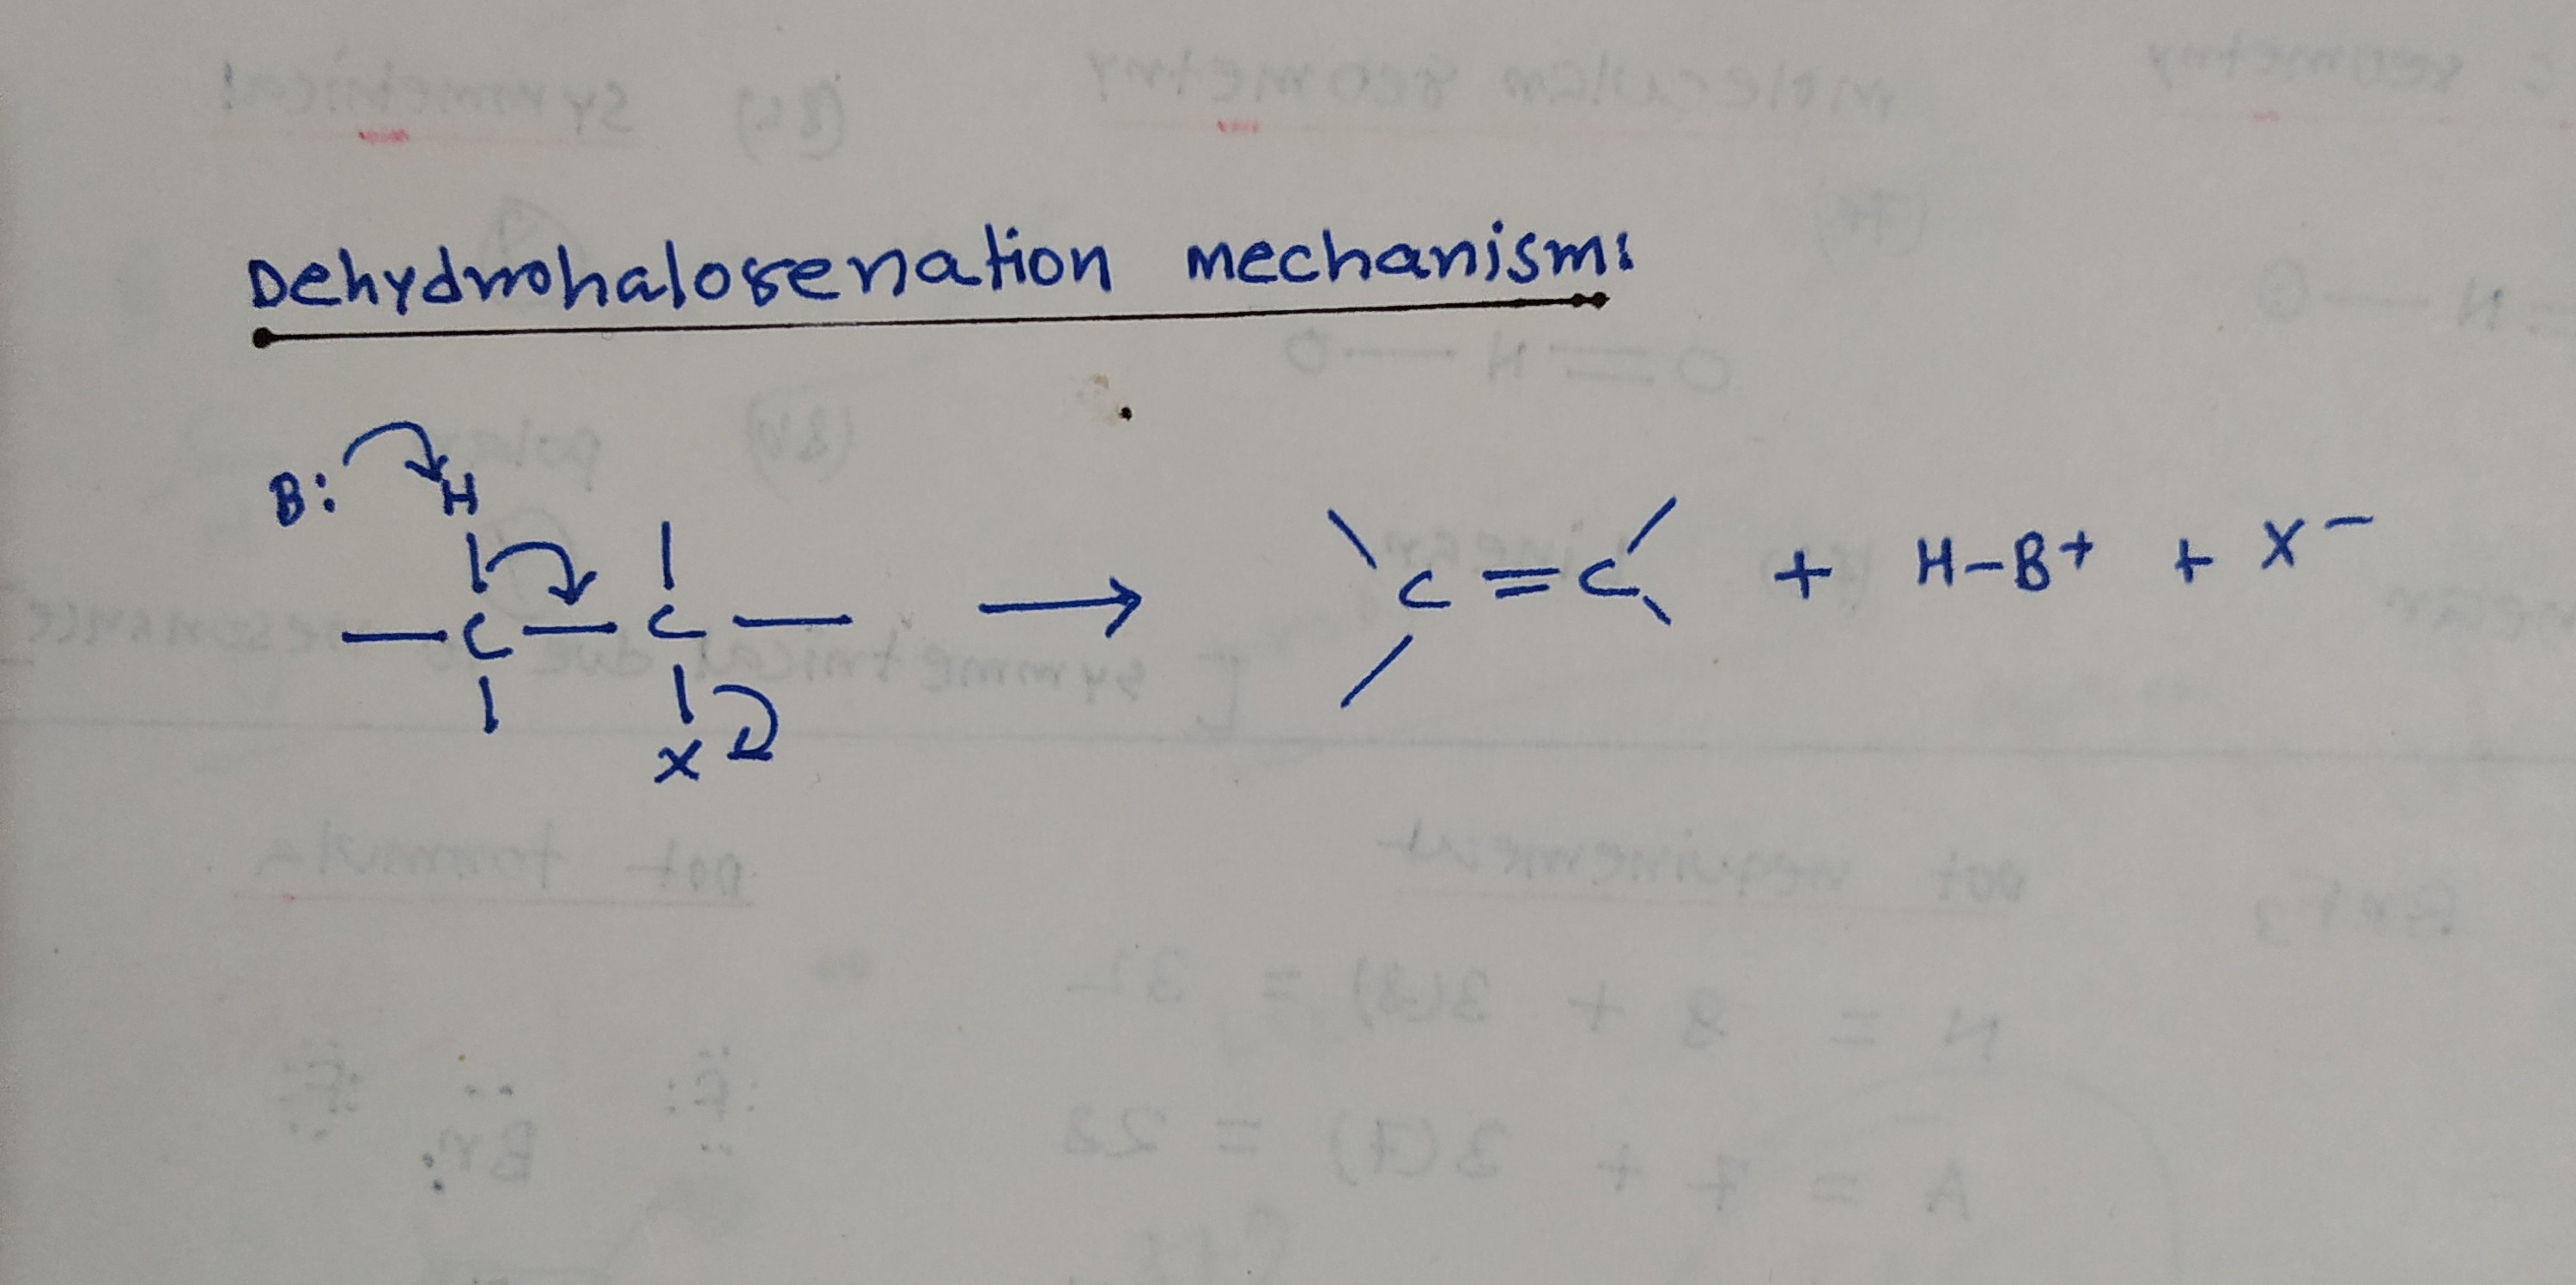 Dehydrohalogenation mechanism:
B: H
C C → C = C + H-B+ + X-
X